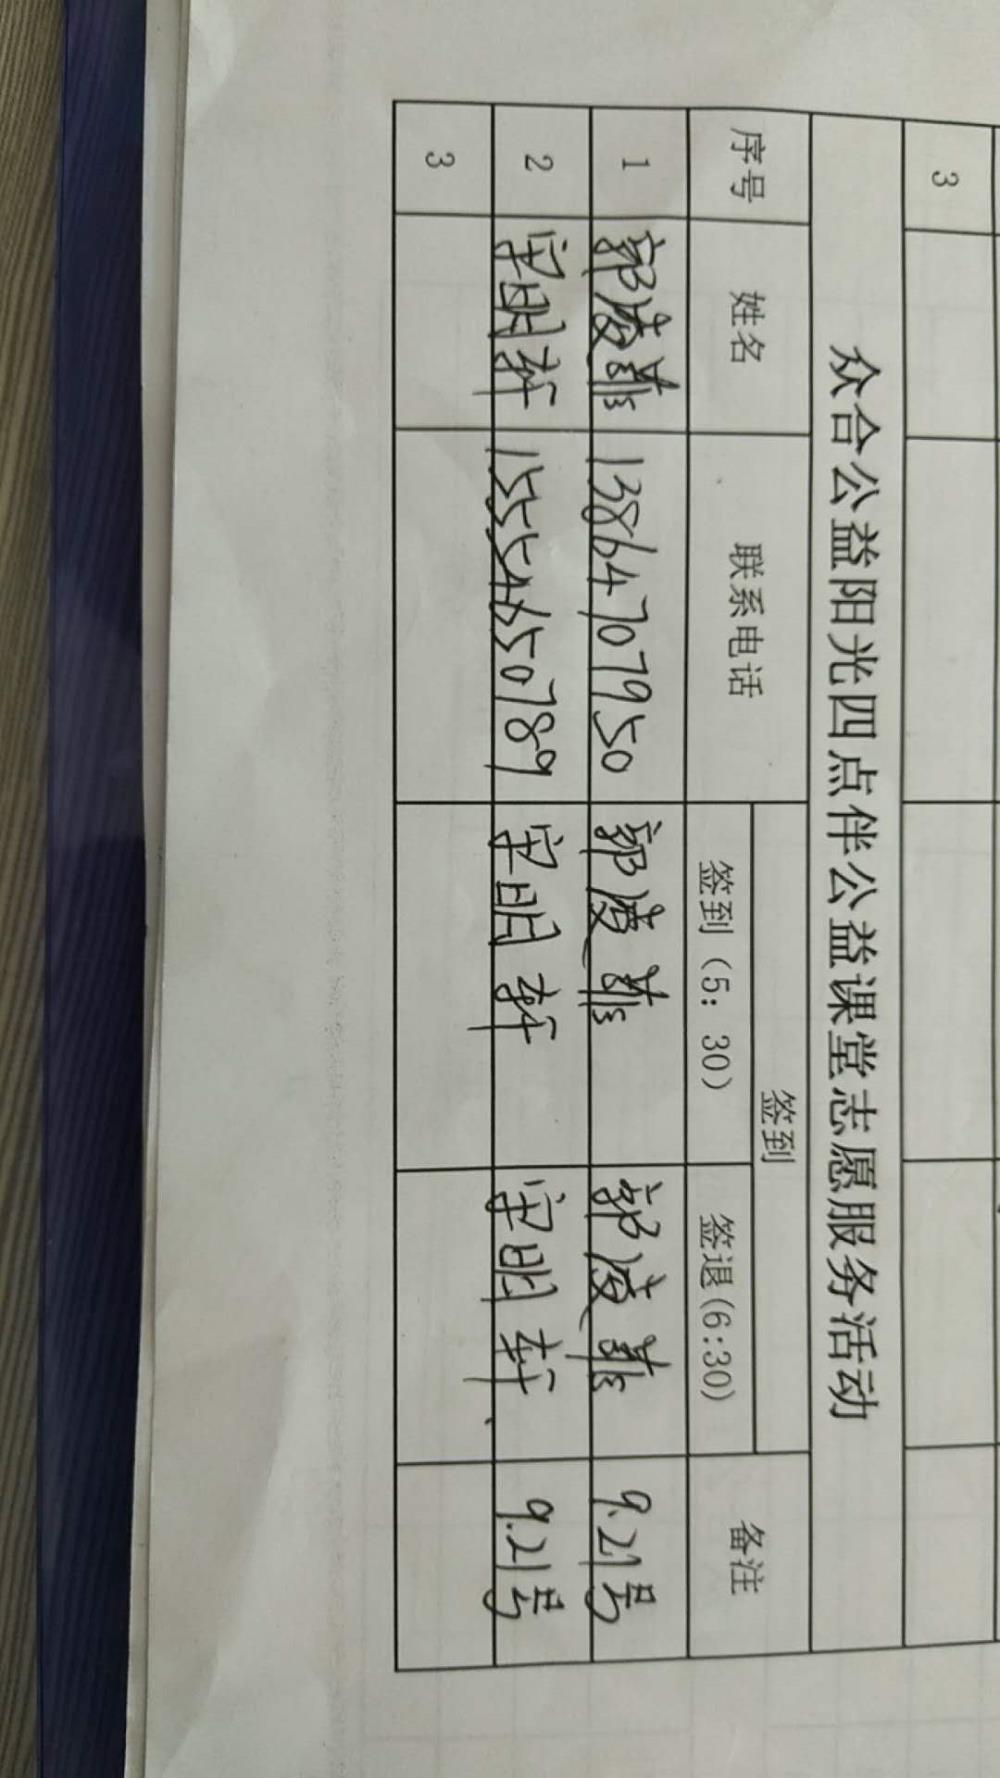 3
众合公益阳光四点伴公益课堂志愿服务活动
序号 姓名 联系电话 签到 备注
签到（5：30） 签退(6:30)
1 郭凌菲 13864707950 郭凌菲 郭凌菲 9.21号
2 宋明轩 15554650789 宋明轩 宋明轩 9.21号
3